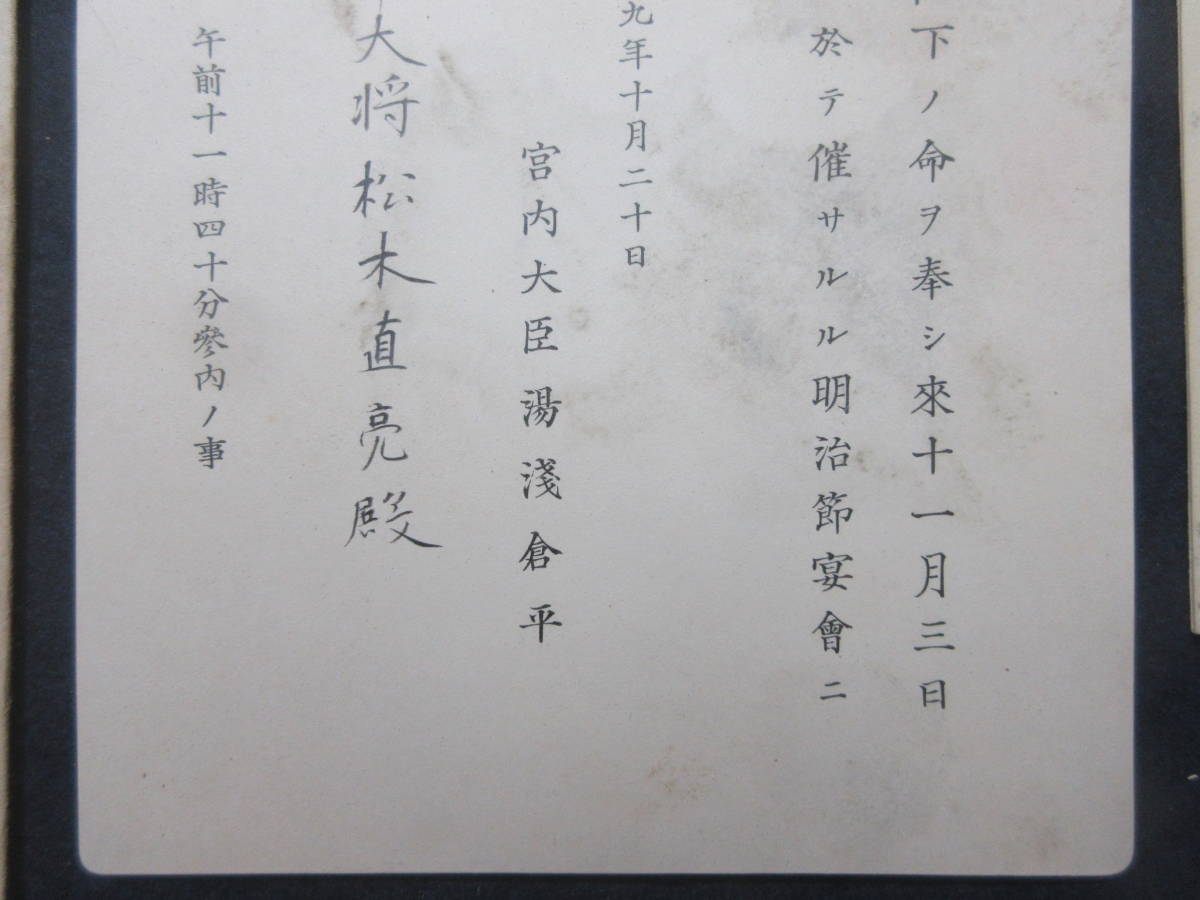 下ノ命ヲ奉シ來十一月三日
於テ催サルル明治節宴會ニ
九年十月二十日
宮内大臣湯淺倉平
大将松木直亮殿
午前十一時四十分參内ノ事